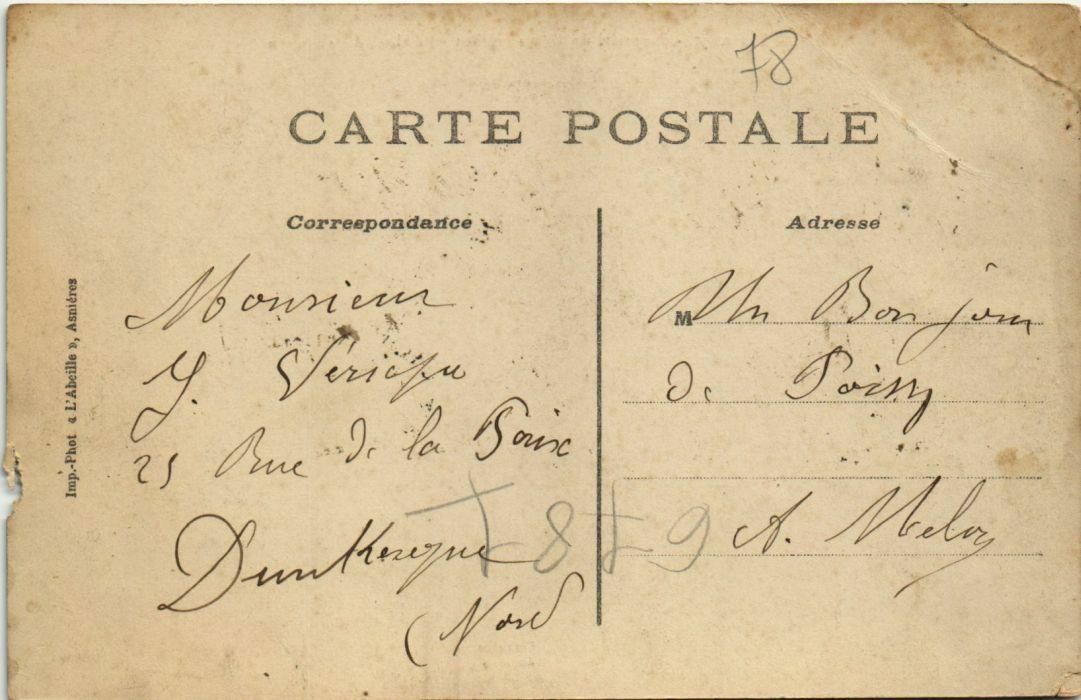 78
CARTE POSTALE
Correspondance
Monsieur
25 Rue de la Paix
Dunkerque
(Nord
Adresse
M Un Bonjour
de Poissy
A.
Imp.-Phot « L'Abeille », Asnières